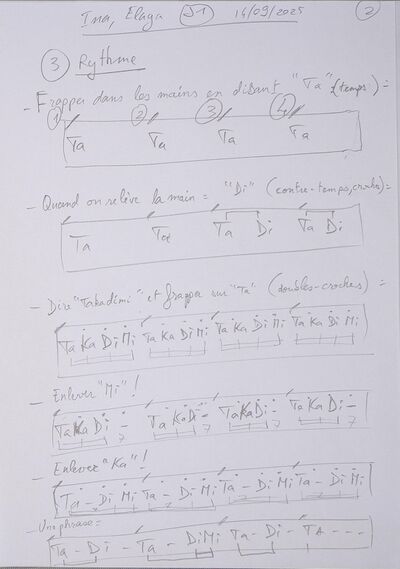 Ina, Elaga S1 14/09/2025 2
3 Rythme
- Frapper dans les mains en disant "Ta" (temps) =
1 2 3 4
Ta Ta Ta Ta
- Quand on relève la main = "Di" (contre-temps, croches) =
Ta Ta Ta Di Ta Di
- Dire "Takadimi" et frapper sur "Ta" (doubles-croches) =
Ta Ka Di Mi Ta Ka Di Mi Ta Ka Di Mi Ta Ka Di Mi
- Enlever "Mi" !
Ta Ka Di - Ta Ka Di - Ta Ka Di - Ta Ka Di -
7 7 7 7
- Enlever "Ka" !
Ta - Di Mi Ta - Di Mi Ta - Di Mi Ta - Di Mi
- Une phrase =
Ta - Di - Ta - Di Mi Ta - Di - TA - - -